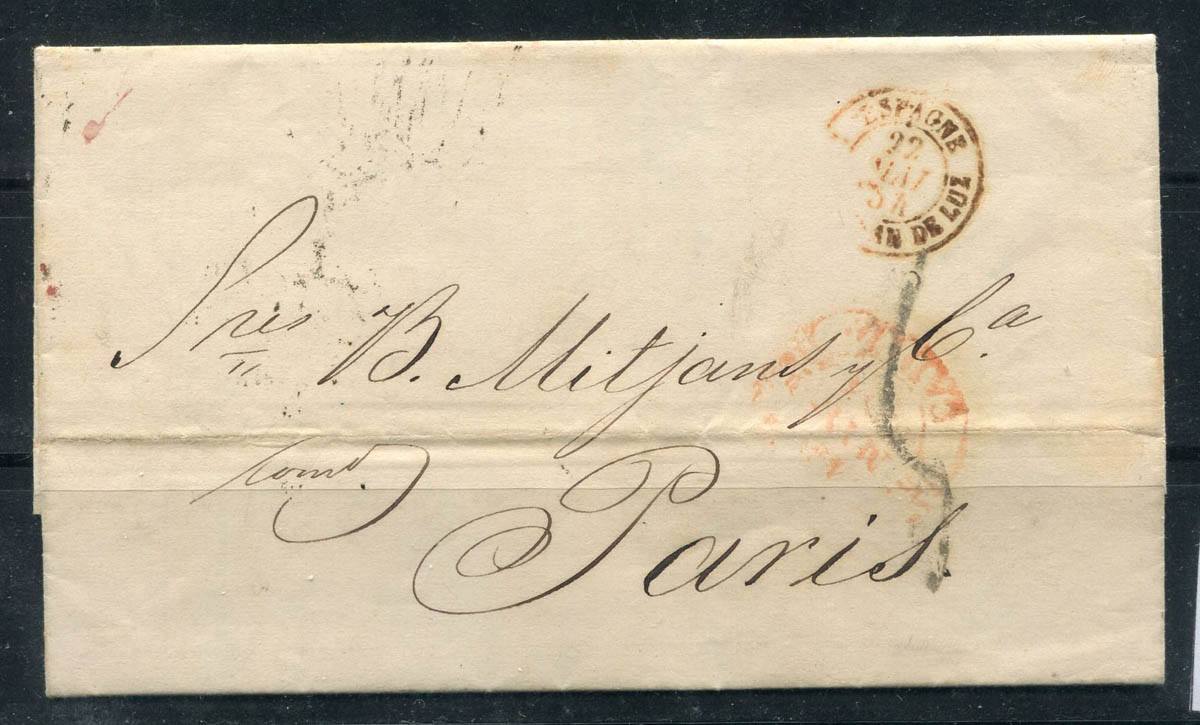 ESPAGNE
22
MAI
54
AN DE LUZ
Sres B. Mitjans y Ca.
Paris.